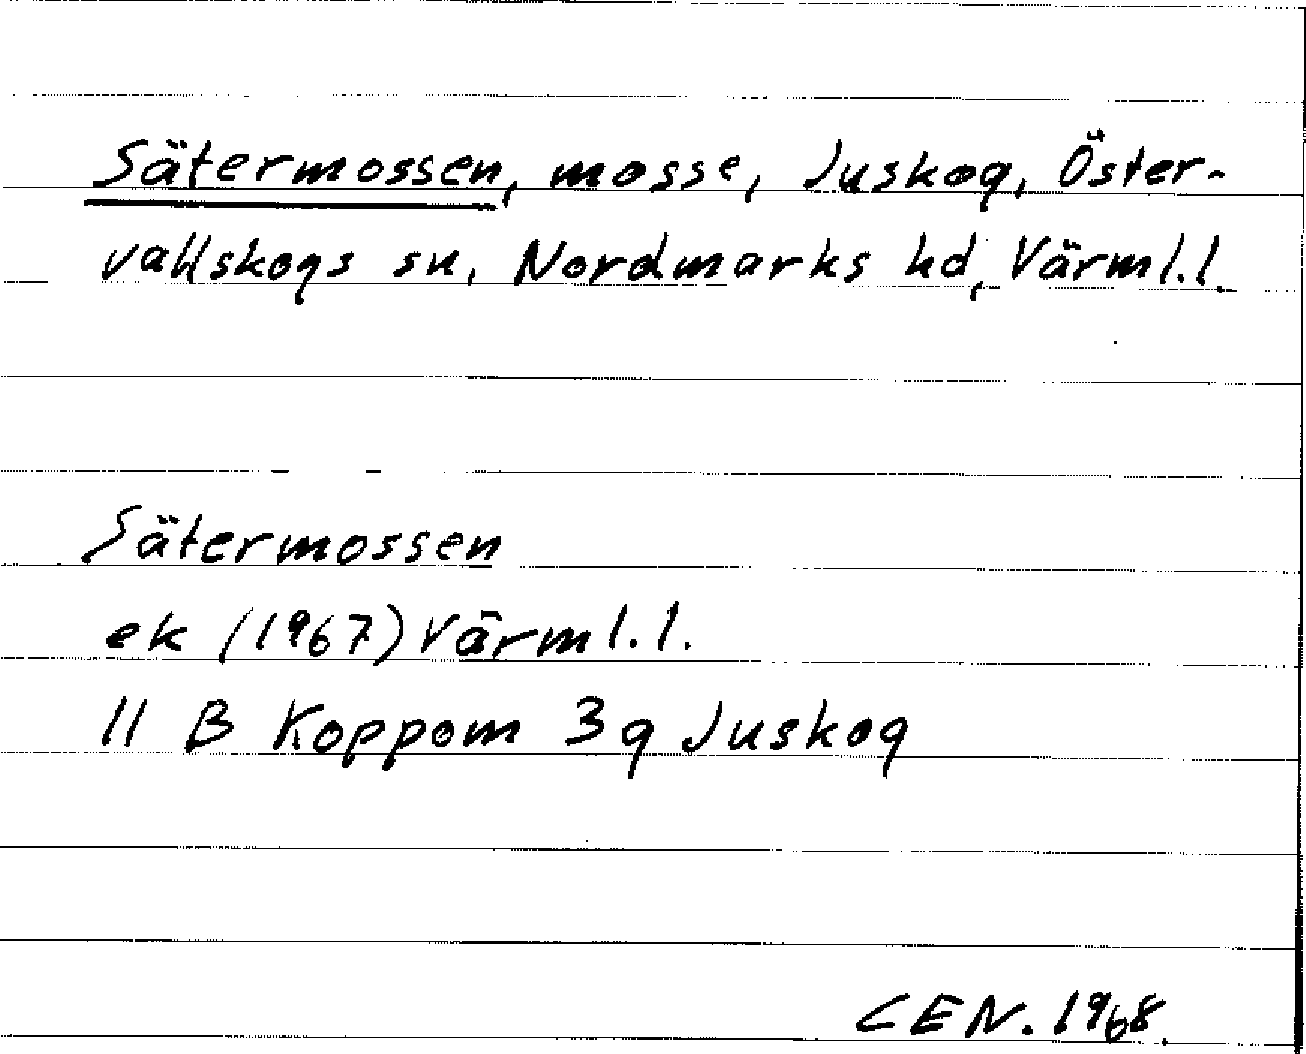 Sätermossen, mosse, Juskog, Öster-
vallskogs sn, Nordmarks hd, Värml.l.
Sätermossen
ek (1967) Värml.l.
11 B Koppom 3g Juskog
CEN. 1968